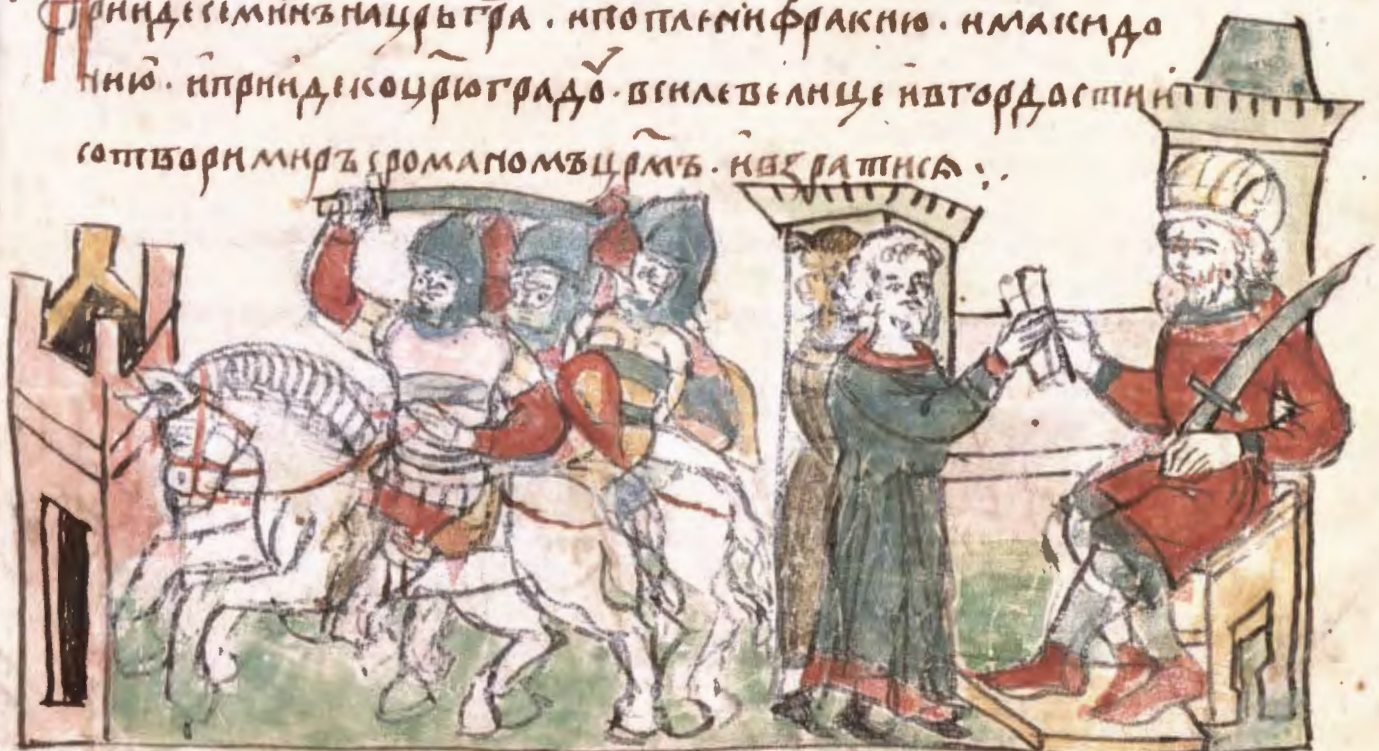 Прииде семинъ на црьгра · и поплени фракию · и макидо
нию҆ · и҆ прии҆де ко црю҆градо · в силе велице и҆ в гордости и҆
сотвори миръ с романомъ цр҃мъ · и҆ възратисѧ ⁖